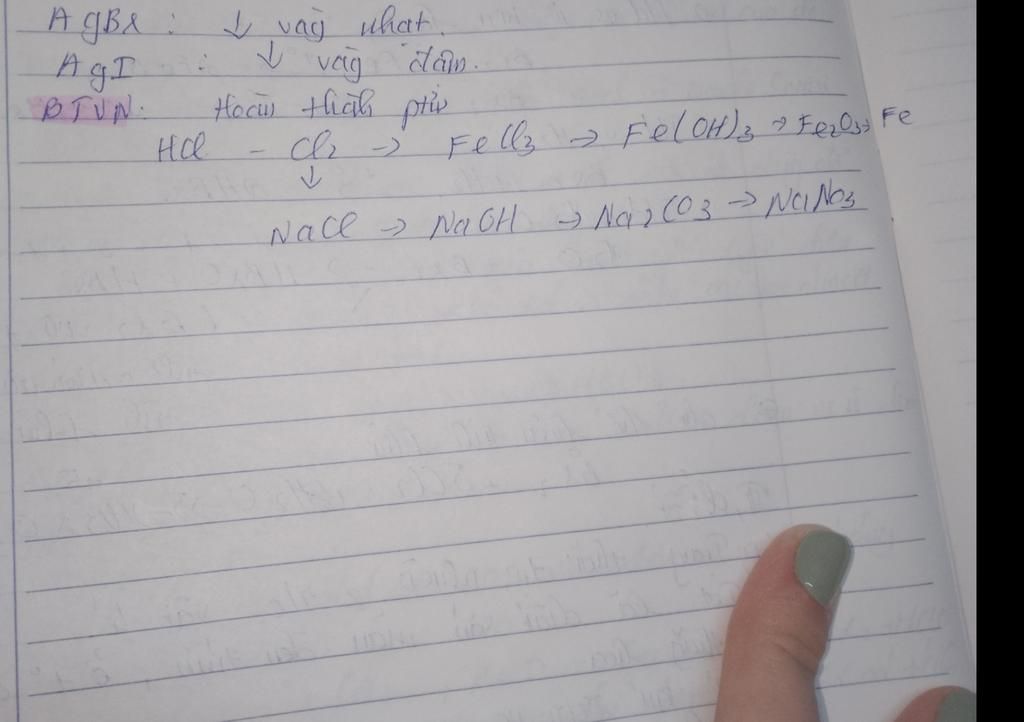 AgBr : ↓ vàg nhạt.
AgI : ↓ vàg đậm.
BTVN: Hoàn thàh ptpư
HCl - Cl2 → FeCl3 → Fe(OH)3 → Fe2O3 → Fe
↓
NaCl → NaOH → Na2CO3 → NaNO3